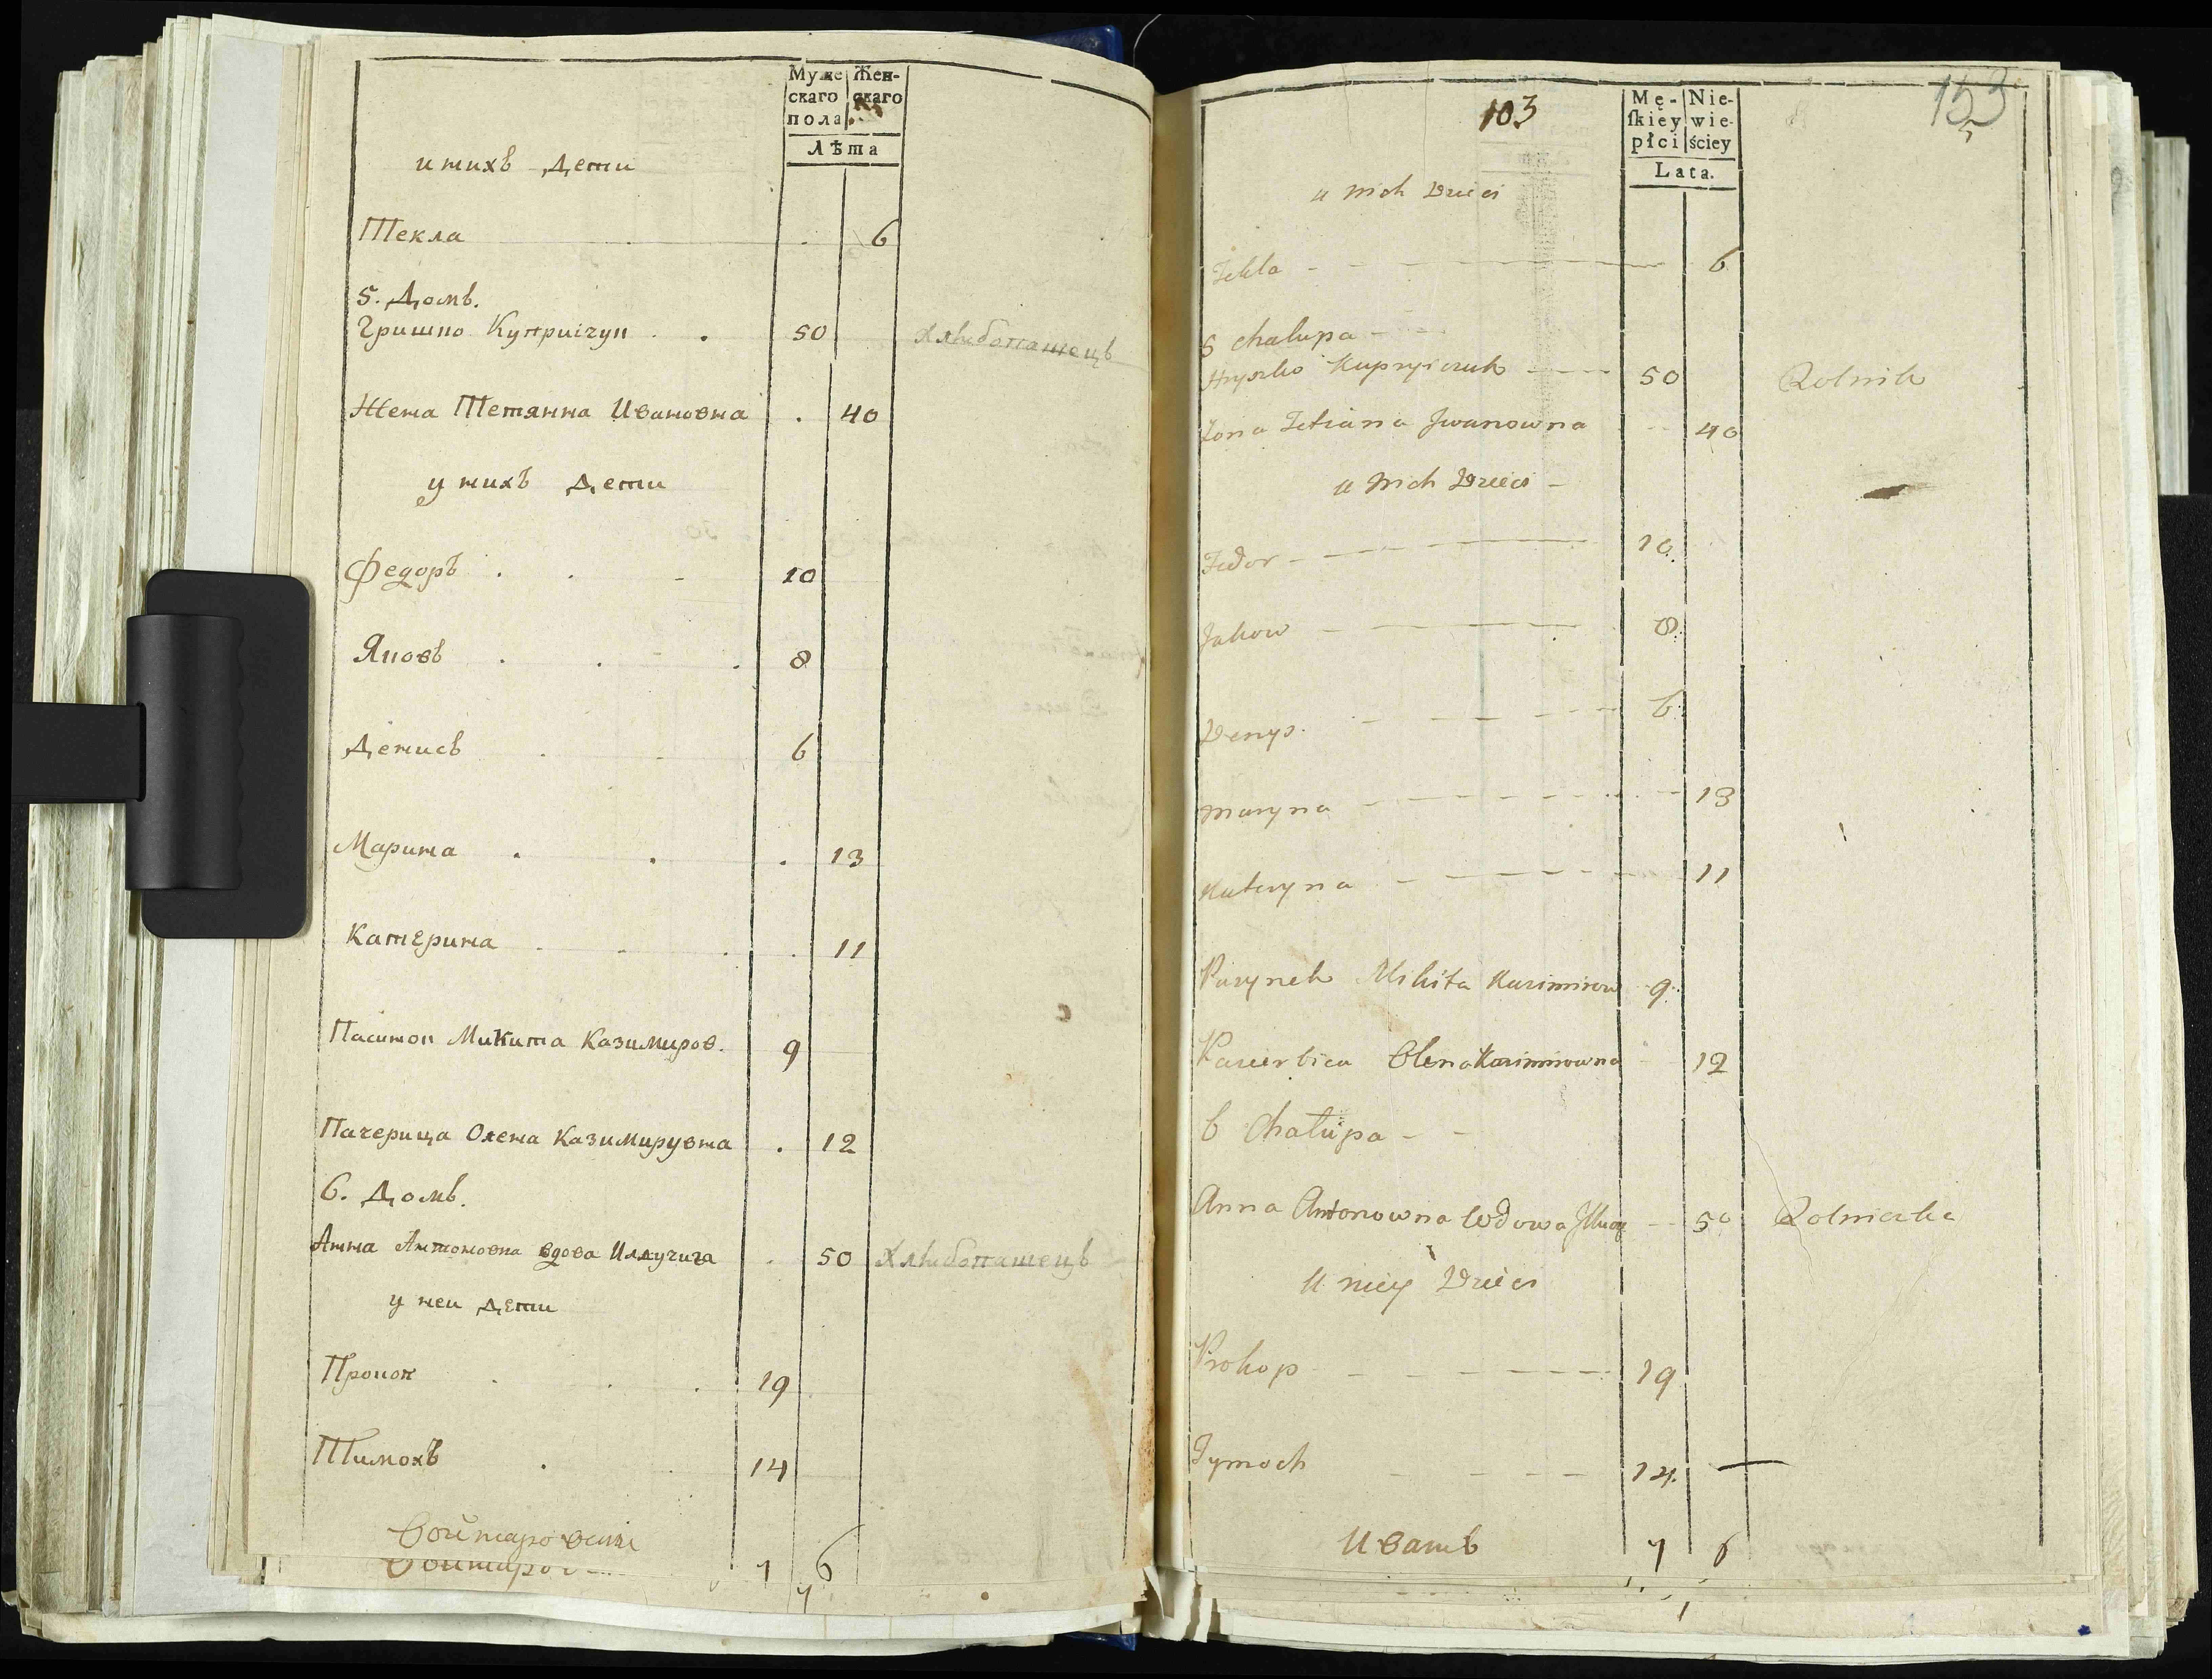 Муже скаго пола
Жен- скаго
Лѣта
и нихъ Дети
Текла 6
5. Домъ.
Гришко Куприічук . . 50 Хлѣбопашецъ
Жена Тетянна Ивановна . 40
у нихъ Дети
Федоръ . . - 10
Яковъ . . - . 8
Денисъ . - 6
Марина . . . 13
Катерина . . . 11
Пасинок Микита Казимиров. 9
Пачерица Олена Казимирувна . 12
6. Домъ.
Анна Антоновна вдова Иллучиха . 50 Хлѣбопашецъ
у неи Дети
Прокоп . . . 19
Тимохъ . . 14
7 6
103
153
Mę- skiey płci
Nie- wie- ściey
Lata.
u nich Dzieci
Tekla - - - 6
5 chalupa - -
Hryszko Kupryiczuk - - 50 Rolnik
Zona Tetiana Jwanowna - - 40
u nich Dzieci -
Fedor - - - - 10
Jakow - - - - 8
Denys. - - - - 6
Maryna - - - - - 13
Kateryna - - - - 11
Pasynek Mikita Kazimirow 9
Pasierbica Olena Kazimirowna 12
6 Chalupa - -
Anna Antonowna Wdowa - - 50 Rolniczka
U niey Dzieci
Prokop - - - - 19
Tymoch - - - - 14
Иванъ 7 6